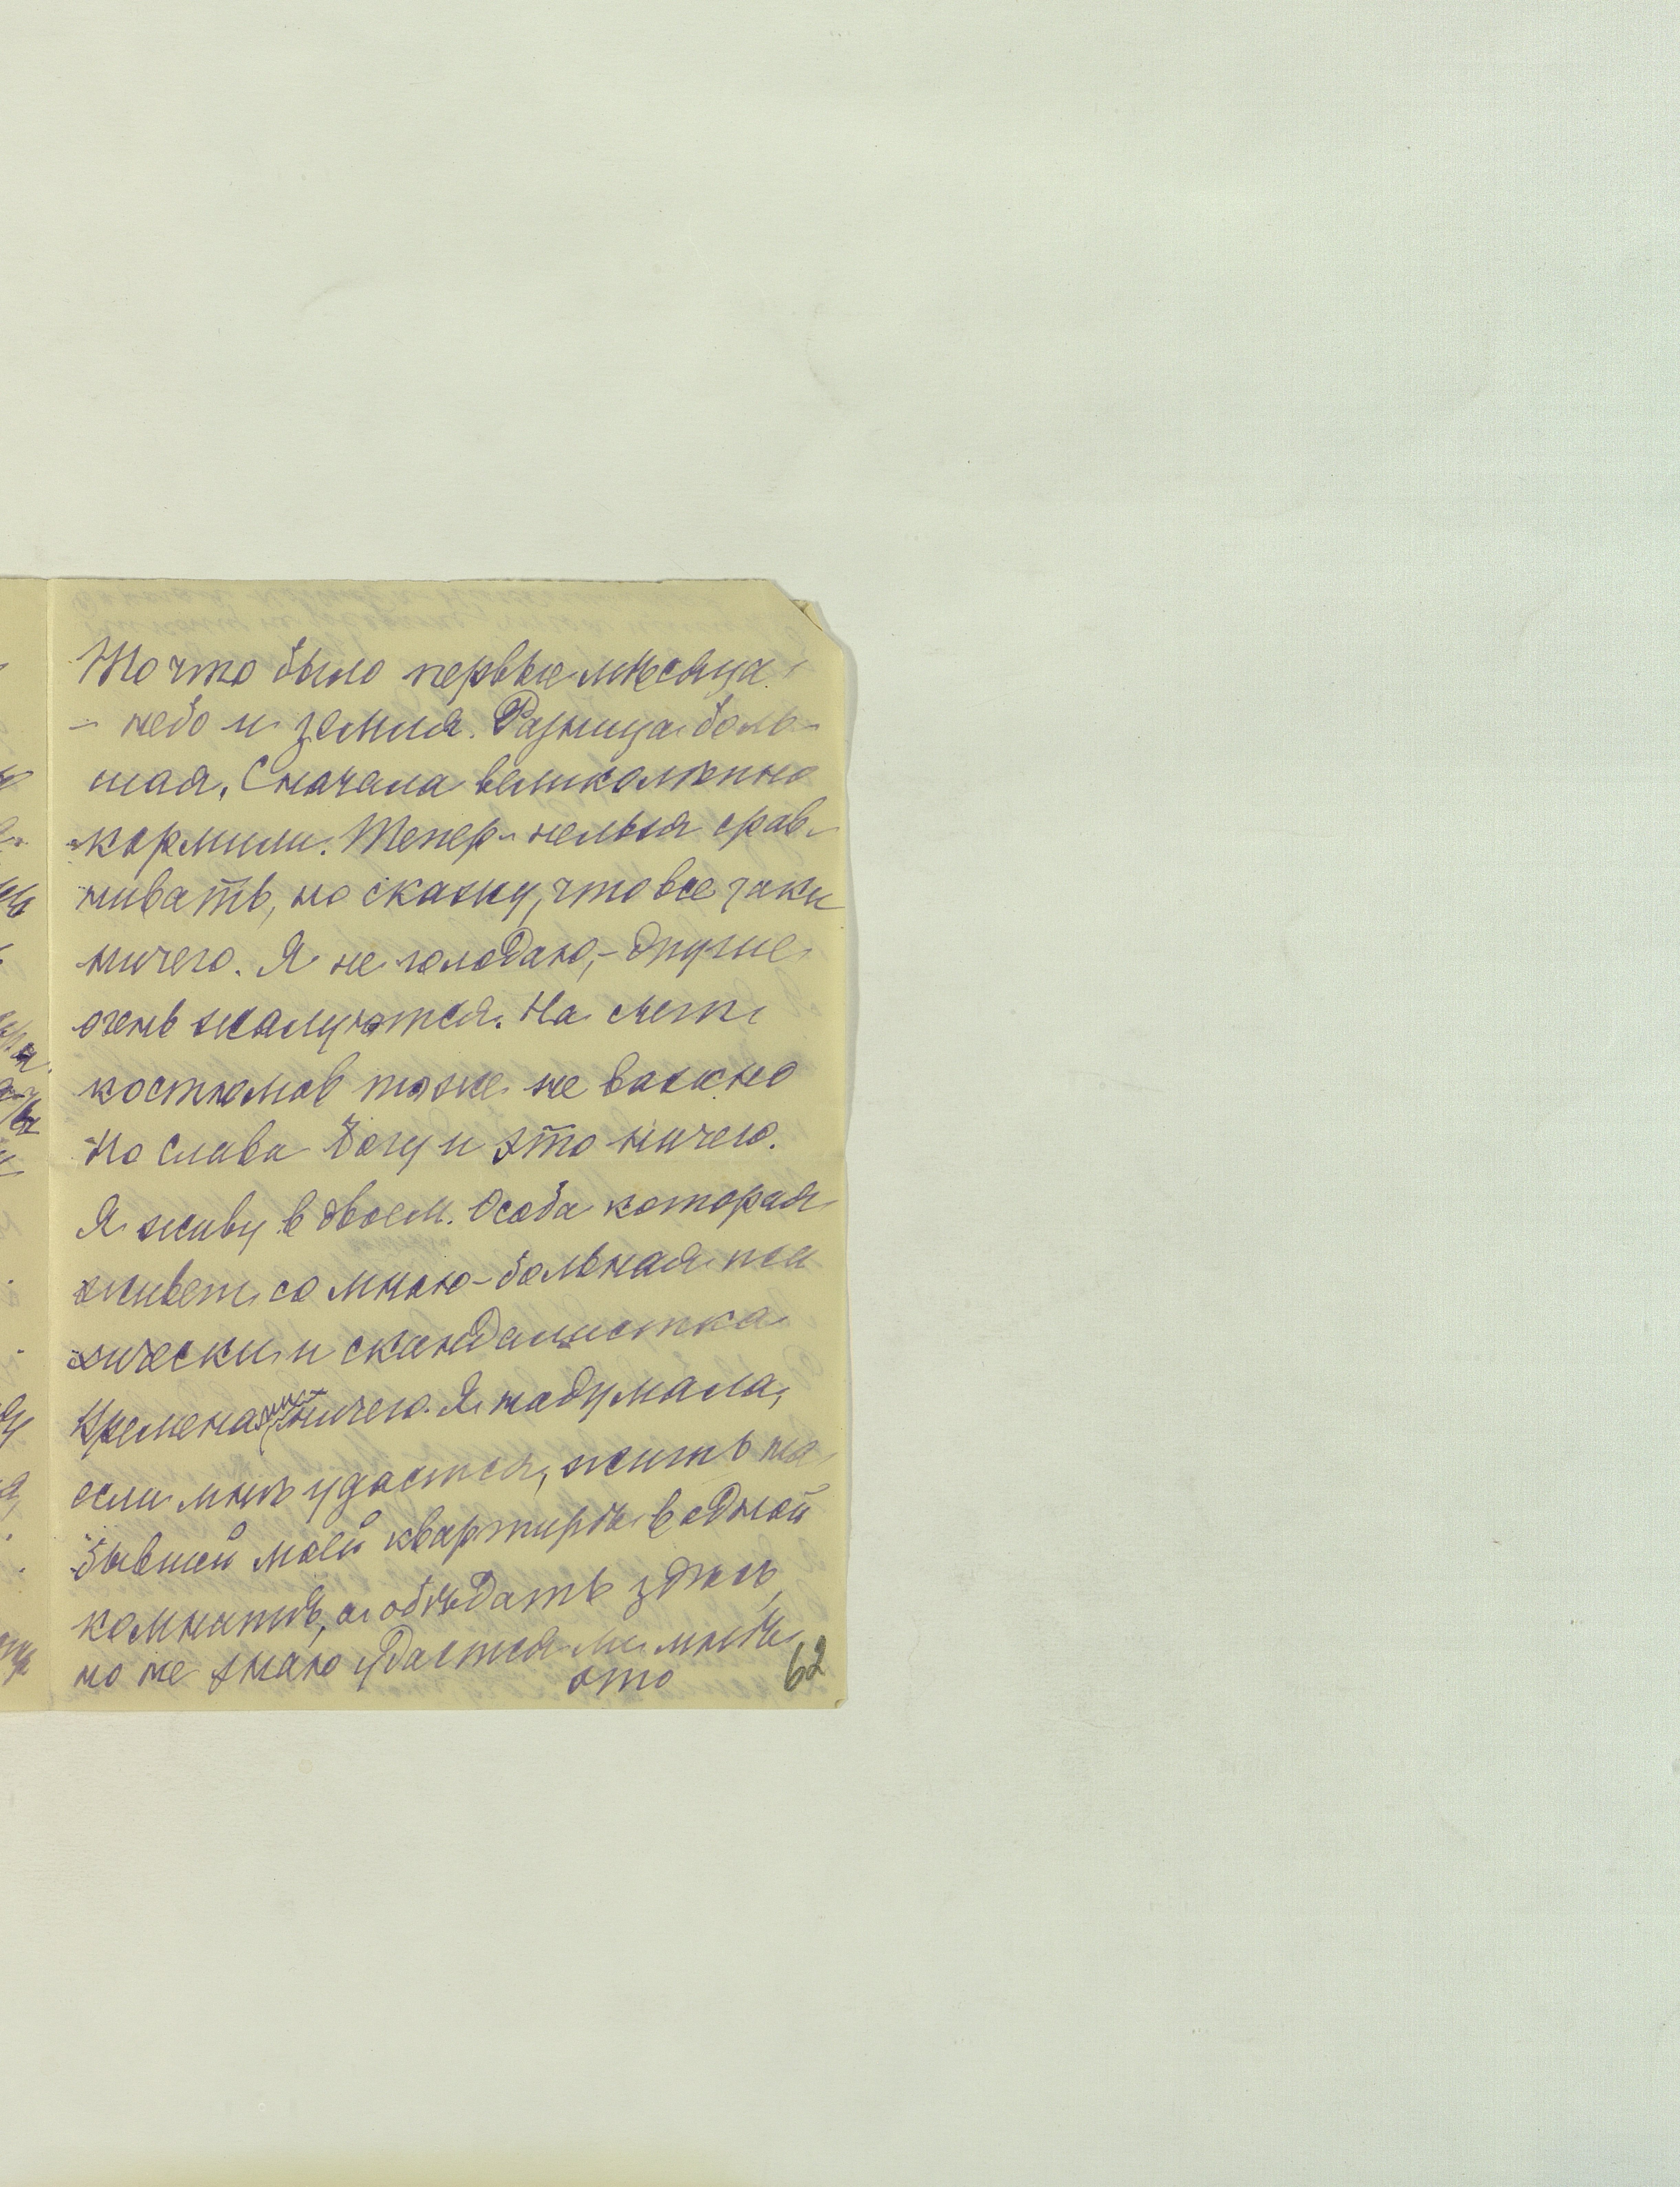 То что было первые мѣсяца
- небо и земля. Разница боль-
шая. Сначала великолѣпно
кормили. Тепер нельзя срав-
нивать, но скажу, что все таки
ничего. Я не голодаю, - другие
очень жалуются. На счет
костюмов тоже не важно
Но слава Богу и это ничего.
Я живу в двоем. Особа которая
живет со мною - больная пси
хически и скандалистка
Временами ничего. Я надумала,
если мнѣ удастся, жить на
бывшей моей квартирѣ в одной
комнатѣ, а обѣдать здѣсь,
но не знаю удастся ли мнѣ
это
62